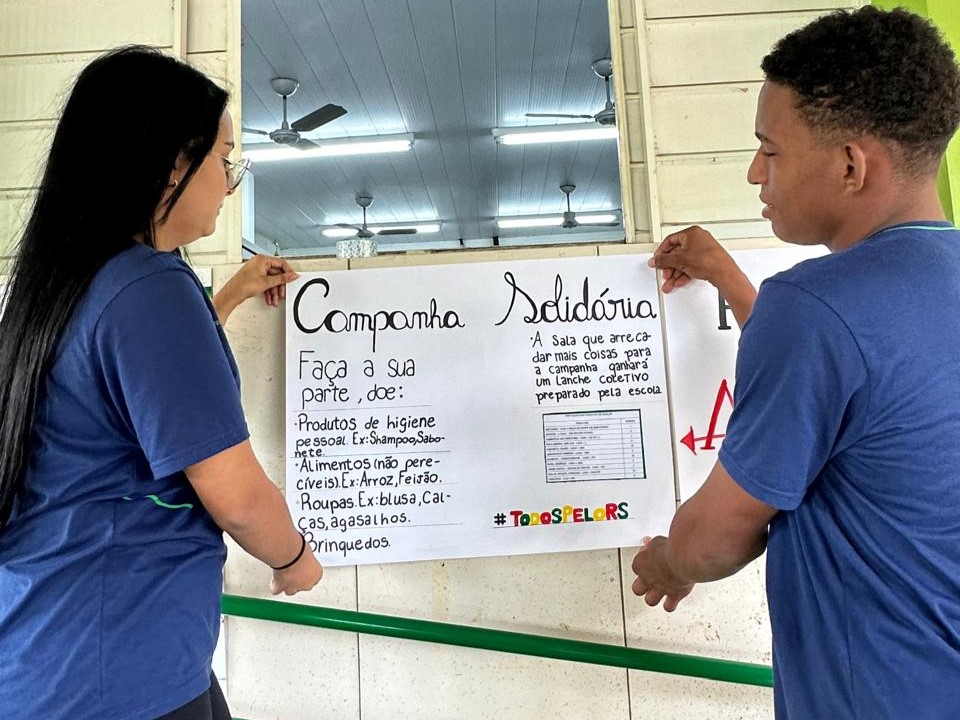 Campanha Solidária
Faça a sua
parte, doe:
·Produtos de higiene
pessoal. Ex:Shampoo,Sabo-
nete.
·Alimentos(não pere-
cíveis).Ex:Arroz,Feirão.
·Roupas.Ex:blusa,Cal-
ças,agasalhos.
Brinquedos.
·A Sala que arreca-
dar mais coisas para
a campanha ganhará
um Lanche COLETIVO
preparado pela escola
#TODOSPELORS